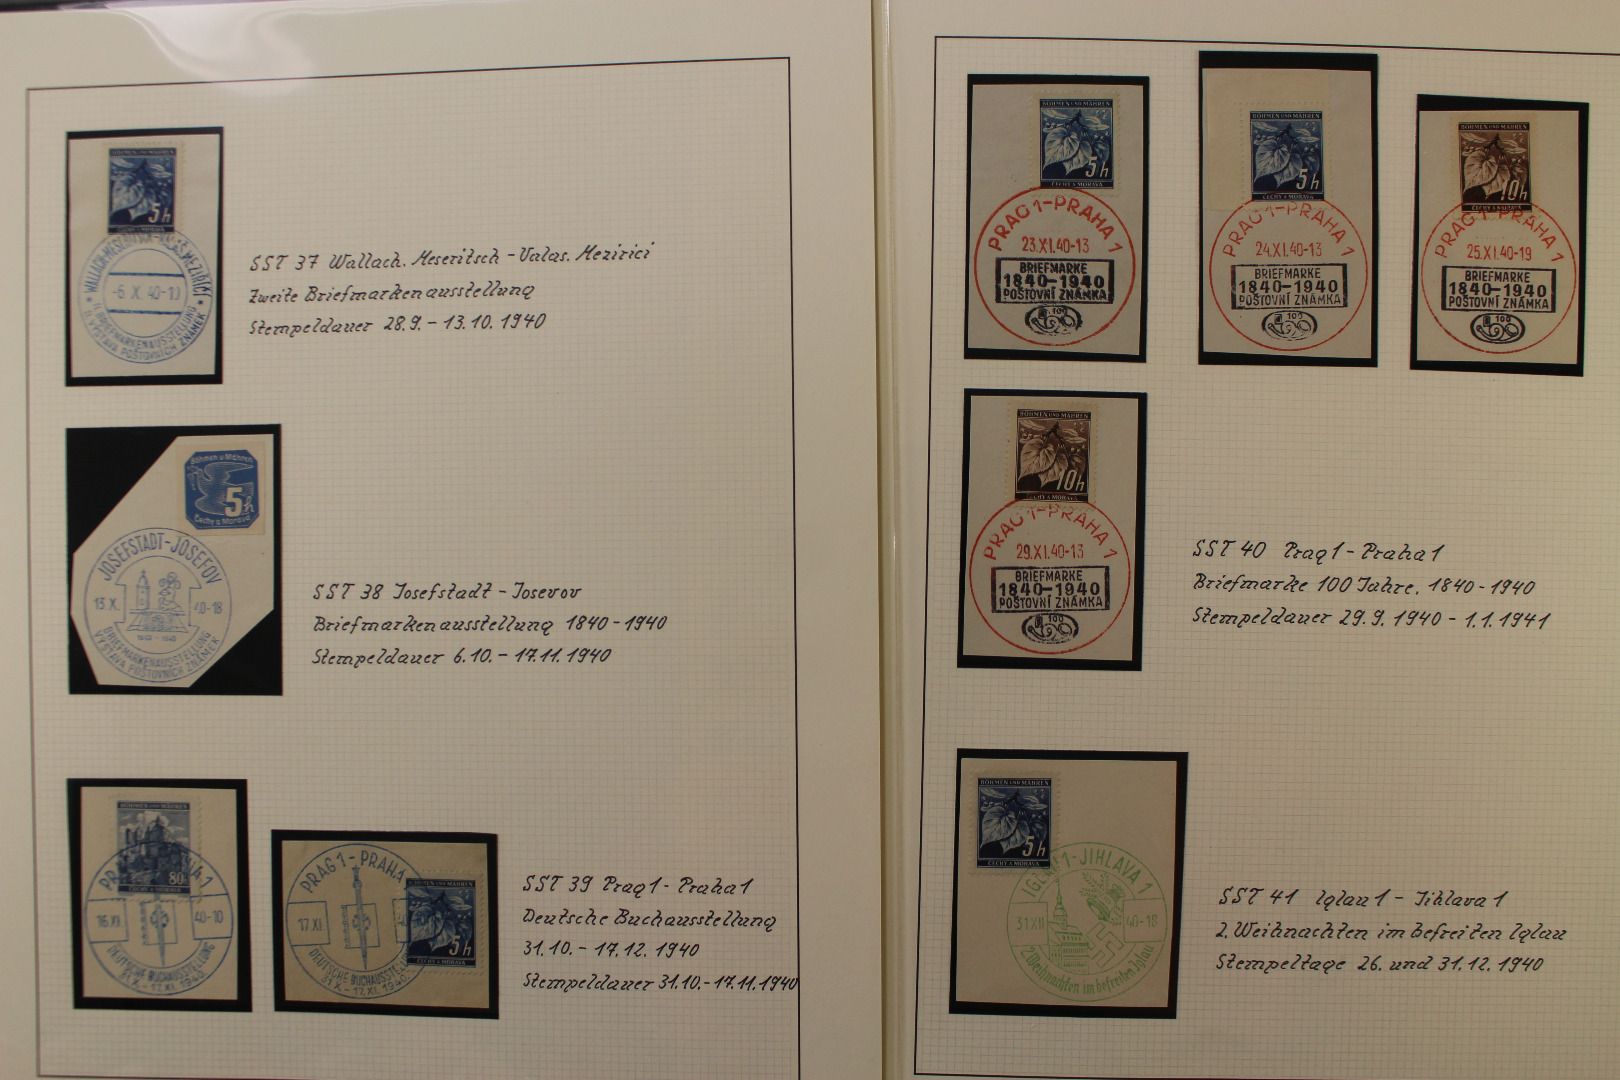 BÖHMEN UND MÄHREN
5h
ČECHY A MORAVA
-6.X.40-10
II. BRIEFMARKENAUSSTELLUNG
II. VÝSTAVA POŠTOVNÍCH ZNÁMEK
SST 37 Wallach. Meseritsch - Valas. Mezirici
Zweite Briefmarkenausstellung
Stempeldauer 28.9. - 13.10. 1940
Böhmen u. Mähren
5h
Čechy a Morava
JOSEFSTADT-JOSEFOV
13.X. 40-18
1840-1940
BRIEFMARKENAUSSTELLUNG
VÝSTAVA POŠTOVNÍCH ZNÁMEK
SST 38 Josefstadt - Josevov
Briefmarkenausstellung 1840 - 1940
Stempeldauer 6.10. - 17.11. 1940
BÖHMEN UND MÄHREN
80
ČECHY A MORAVA
16.XI. 40-10
DEUTSCHE BUCHAUSSTELLUNG
31.X.-17.XI. 1940
PRAG 1 - PRAHA 1
17.XI.
DEUTSCHE BUCHAUSSTELLUNG
31.X.-17.XI. 1940
BÖHMEN UND MÄHREN
5h
ČECHY A MORAVA
SST 39 Prag 1 - Praha 1
Deutsche Buchausstellung
31.10. - 17.12. 1940
Stempeldauer 31.10. - 17.11. 1940
BÖHMEN UND MÄHREN
5h
ČECHY A MORAVA
PRAG 1-PRAHA 1
23.XI.40-13
BRIEFMARKE
1840-1940
POŠTOVNÍ ZNÁMKA
100
BÖHMEN UND MÄHREN
5h
ČECHY A MORAVA
PRAG 1-PRAHA 1
24.XI.40-13
BRIEFMARKE
1840-1940
POŠTOVNÍ ZNÁMKA
100
BÖHMEN UND MÄHREN
10h
ČECHY A MORAVA
PRAG 1-PRAHA 1
25.XI.40-19
BRIEFMARKE
1840-1940
POŠTOVNÍ ZNÁMKA
100
BÖHMEN UND MÄHREN
10h
ČECHY A MORAVA
PRAG 1-PRAHA 1
29.XI.40-13
BRIEFMARKE
1840-1940
POŠTOVNÍ ZNÁMKA
100
SST 40 Prag 1 - Praha 1
Briefmarke 100 Jahre. 1840 - 1940
Stempeldauer 29.9. 1940 - 1.1. 1941
BÖHMEN UND MÄHREN
5h
ČECHY A MORAVA
IGLAU 1-JIHLAVA 1
31.XII 40-18
2. Weihnachten im befreiten Iglau
SST 41 Iglau 1 - Jihlava 1
2. Weihnachten im befreiten Iglau
Stempeltage 26. und 31.12. 1940